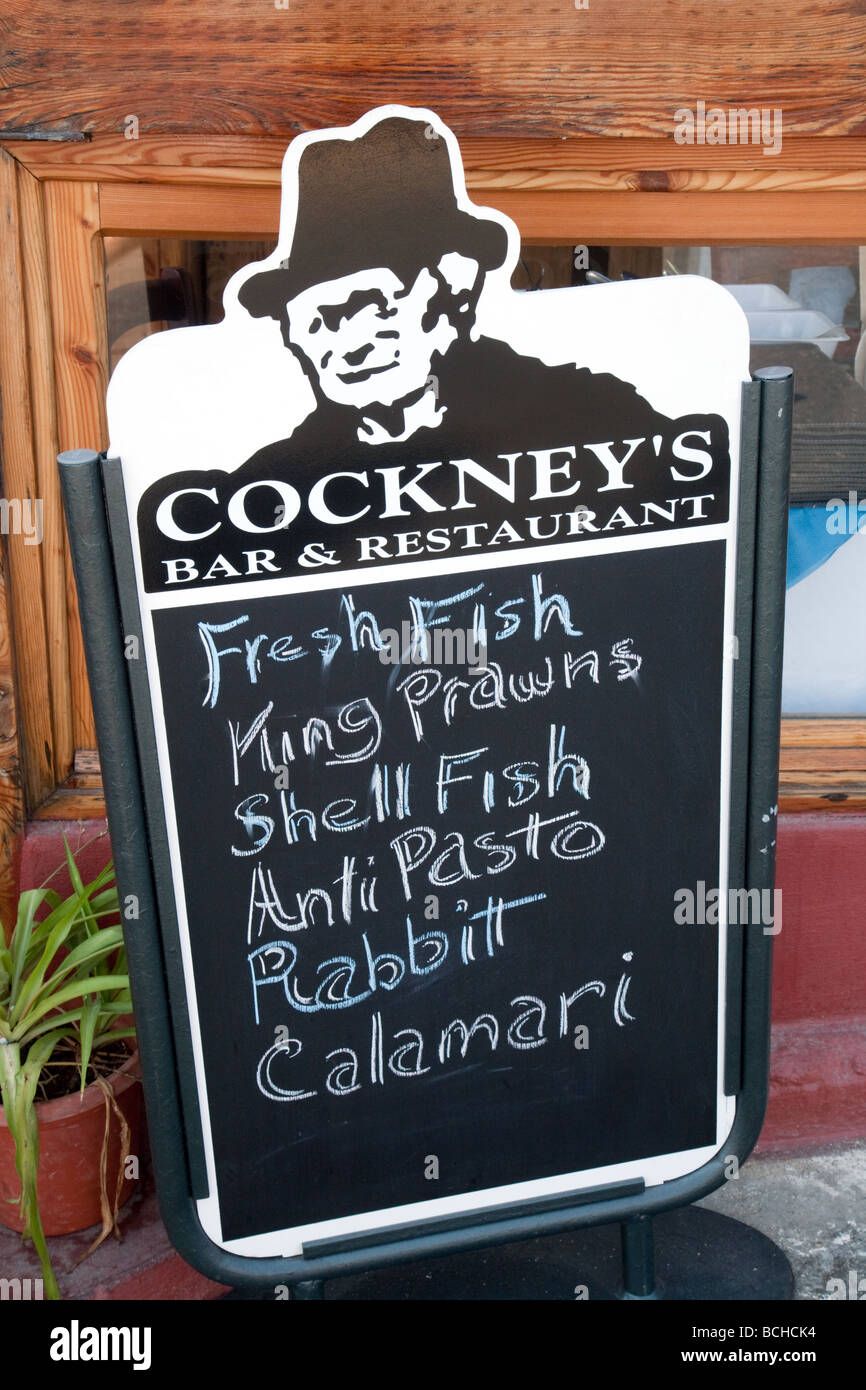 COCKNEY'S
BAR & RESTAURANT
Fresh Fish
King Prawns
Shell Fish
Anti Pasto
Rabbit
Calamari
alamy
Image ID: BCHCK4
www.alamy.com